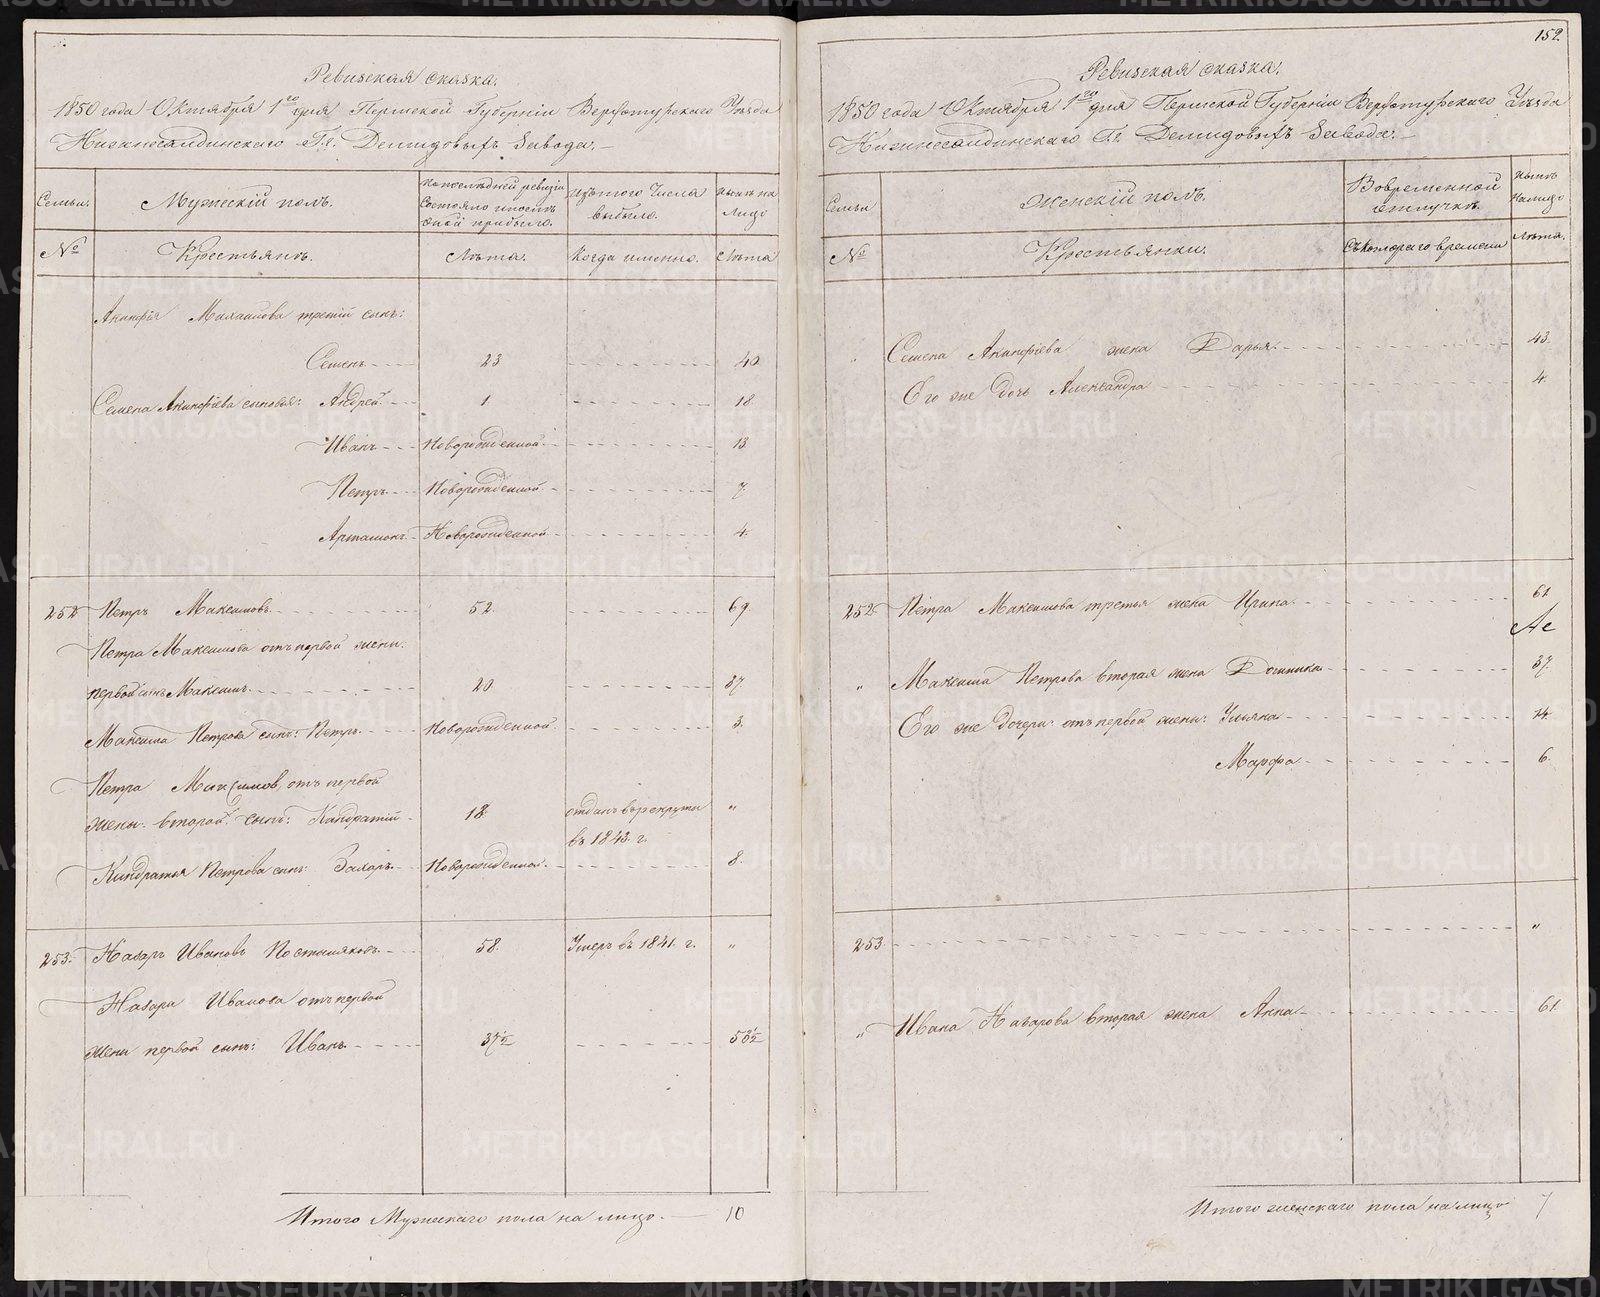 Ревизская сказка.
1850 года Октября 1го дня Пермской Губернiи Верхотурскаго Уѣзда
Нижнесалдинскаго Г.г. Демидовыхъ Завода.
Семьи.
Мужескiй полъ.
По последней ревизiи состояло и после оной прибыло.
Изъ того Числа выбыло.
Нынѣ на Лицо
№
Крестьянъ.
Лѣта.
Когда именно.
Лѣта
Акинфiя Махаилова третiй сынъ:
Семенъ 23 40
Семена Акинфiева сыновья: Андрей 1 18
Иванъ Новорожденной 13
Петръ Новорожденной 7
Артамонъ Новорожденной 4
252 Петръ Максимовъ 52. 69
Петра Максимова отъ первой жены:
первой сынъ Максимъ 20 37
Максима Петрова сынъ: Петръ Новорожденной 3
Петра Максимов, отъ первой
жены второй сынъ: Кандратiй 18 отданъ в рекруты "
въ 1843 г.
Кандратья Петрова сынъ: Захаръ Новорожденной 8.
253 Назаръ Ивановъ Постниковъ 58. Умеръ въ 1841 г. "
Назара Иванова отъ первой
жены первой сынъ: Иванъ 37½ 50½
Итого Мужескаго пола на лицо. 10
152.
Ревизская сказка.
1850 года Октября 1го дня Пермской Губернiи Верхотурскаго Уѣзда
Нижнесалдинскаго Г.г. Демидовыхъ Завода.
Семьи
Женскiй полъ.
Во временной отлучкѣ.
Нынѣ на лицо
№
Крестьянки.
Съ котораго времени
Лѣта.
" Семена Акинфiева жена Дарья 43.
Его же дочь Александра 4.
252 Петра Максимова третья жена Ирина 61
" Максима Петрова вторая жена Домника 37.
Его же Дочери: отъ первой жены: Ульяна 14.
Марфа 6.
253 "
" Ивана Назарова вторая жена Анна 61
Итого женскаго пола на лицо 7
METRIKI.GASO-URAL.RU